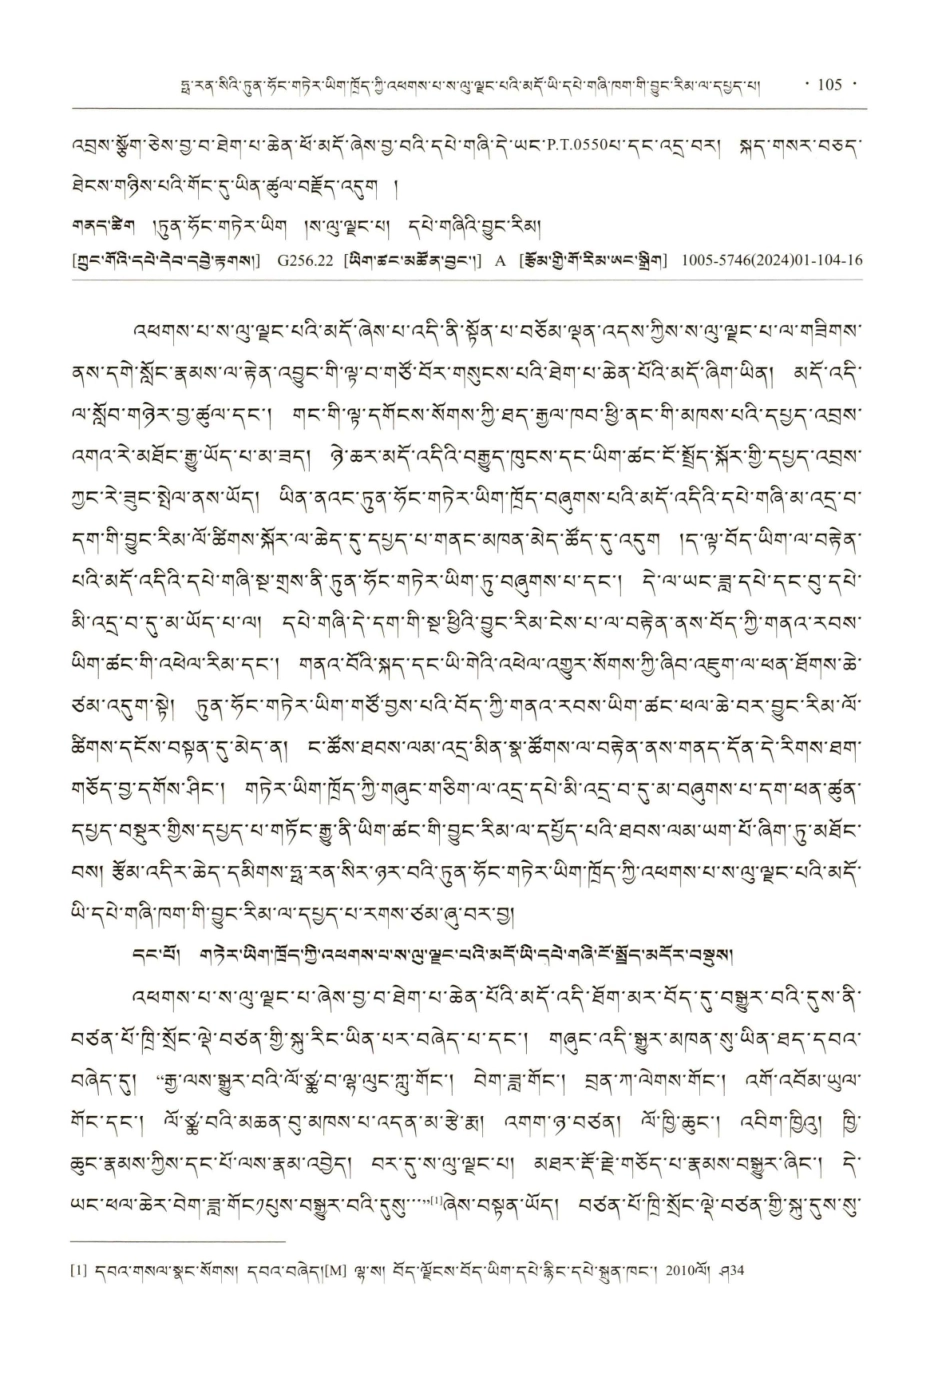 ཧྥ་རན་སིའི་ཏུན་ཧོང་གཏེར་ཡིག་ཁྲོད་ཀྱི་འཕགས་པ་ས་ལུ་ལྗང་པའི་མདོ་ཡི་དཔེ་གཞི་ཁག་གི་བྱུང་རིམ་ལ་དཔྱད་པ། · 105 ·
འབྲས་སྩོག་ཅེས་བྱ་བ་ཐེག་པ་ཆེན་པོ་མདོ་ཞེས་བྱ་བའི་དཔེ་གཞི་དེ་ཡང་P.T.0550པ་དང་འདྲ་བར། སྐད་གསར་བཅད་
ཐེངས་གཉིས་པའི་གོང་དུ་ཡིན་ཚུལ་བརྗོད་འདུག །
གནད་ཚིག །ཏུན་ཧོང་གཏེར་ཡིག །ས་ལུ་ལྗང་པ། དཔེ་གཞིའི་བྱུང་རིམ།
[ཀྲུང་གོའི་དཔེ་དེབ་དབྱེ་རྟགས།] G256.22 [ཡིག་ཚང་མཚོན་བྱང་།] A [རྩོམ་གྱི་གོ་རིམ་ཨང་སྒྲིག] 1005-5746(2024)01-104-16
འཕགས་པ་ས་ལུ་ལྗང་པའི་མདོ་ཞེས་པ་འདི་ནི་སྟོན་པ་བཅོམ་ལྡན་འདས་ཀྱིས་ས་ལུ་ལྗང་པ་ལ་གཟིགས་
ནས་དགེ་སློང་རྣམས་ལ་རྟེན་འབྱུང་གི་ལྟ་བ་གཙོ་བོར་གསུངས་པའི་ཐེག་པ་ཆེན་པོའི་མདོ་ཞིག་ཡིན། མདོ་འདི་
ལ་སློབ་གཉེར་བྱ་ཚུལ་དང་། གང་གི་ལྟ་དགོངས་སོགས་ཀྱི་ཐད་རྒྱལ་ཁབ་ཕྱི་ནང་གི་མཁས་པའི་དཔྱད་འབྲས་
འགའ་རེ་མཐོང་རྒྱུ་ཡོད་པ་མ་ཟད། ཉེ་ཆར་མདོ་འདིའི་བརྒྱུད་ཁུངས་དང་ཡིག་ཚང་ངོ་སྤྲོད་སྐོར་གྱི་དཔྱད་འབྲས་
ཀྱང་རེ་ཟུང་སྤེལ་ནས་ཡོད། ཡིན་ནའང་ཏུན་ཧོང་གཏེར་ཡིག་ཁྲོད་བཞུགས་པའི་མདོ་འདིའི་དཔེ་གཞི་མ་འདྲ་བ་
དག་གི་བྱུང་རིམ་ལོ་ཚིགས་སྐོར་ལ་ཆེད་དུ་དཔྱད་པ་གནང་མཁན་མེད་ཚོད་དུ་འདུག །ད་ལྟ་བོད་ཡིག་ལ་བརྟེན་
པའི་མདོ་འདིའི་དཔེ་གཞི་སྔ་གྲས་ནི་ཏུན་ཧོང་གཏེར་ཡིག་ཏུ་བཞུགས་པ་དང་། དེ་ལ་ཡང་ཟླ་དཔེ་དང་བུ་དཔེ་
མི་འདྲ་བ་དུ་མ་ཡོད་པ་ལ། དཔེ་གཞི་དེ་དག་གི་སྔ་ཕྱིའི་བྱུང་རིམ་ངེས་པ་ལ་བརྟེན་ནས་བོད་ཀྱི་གནའ་རབས་
ཡིག་ཚང་གི་འཕེལ་རིམ་དང་། གནའ་བོའི་སྐད་དང་ཡི་གེའི་འཕེལ་འགྱུར་སོགས་ཀྱི་ཞིབ་འཇུག་ལ་ཕན་ཐོགས་ཆེ་
ཙམ་འདུག་སྟེ། ཏུན་ཧོང་གཏེར་ཡིག་གཙོ་བྱས་པའི་བོད་ཀྱི་གནའ་རབས་ཡིག་ཚང་ཕལ་ཆེ་བར་བྱུང་རིམ་ལོ་
ཚིགས་དངོས་བསྟན་དུ་མེད་ན། ང་ཚོས་ཐབས་ལམ་འདྲ་མིན་སྣ་ཚོགས་ལ་བརྟེན་ནས་གནད་དོན་དེ་རིགས་ཐག་
གཅོད་བྱ་དགོས་ཤིང་། གཏེར་ཡིག་ཁྲོད་ཀྱི་གཞུང་གཅིག་ལ་འདྲ་དཔེ་མི་འདྲ་བ་དུ་མ་བཞུགས་པ་དག་ཕན་ཚུན་
དཔྱད་བསྡུར་གྱིས་དཔྱད་པ་གཏོང་རྒྱུ་ནི་ཡིག་ཚང་གི་བྱུང་རིམ་ལ་དཔྱོད་པའི་ཐབས་ལམ་ཡག་པོ་ཞིག་ཏུ་མཐོང་
བས། རྩོམ་འདིར་ཆེད་དམིགས་ཧྥ་རན་སིར་ཉར་བའི་ཏུན་ཧོང་གཏེར་ཡིག་ཁྲོད་ཀྱི་འཕགས་པ་ས་ལུ་ལྗང་པའི་མདོ་
ཡི་དཔེ་གཞི་ཁག་གི་བྱུང་རིམ་ལ་དཔྱད་པ་རགས་ཙམ་ཞུ་བར་བྱ།
དང་པོ། གཏེར་ཡིག་ཁྲོད་ཀྱི་འཕགས་པ་ས་ལུ་ལྗང་པའི་མདོ་ཡི་དཔེ་གཞི་ངོ་སྤྲོད་མདོར་བསྡུས།
འཕགས་པ་ས་ལུ་ལྗང་པ་ཞེས་བྱ་བ་ཐེག་པ་ཆེན་པོའི་མདོ་འདི་ཐོག་མར་བོད་དུ་བསྒྱུར་བའི་དུས་ནི་
བཙན་པོ་ཁྲི་སྲོང་ལྡེ་བཙན་གྱི་སྐུ་རིང་ཡིན་པར་བཞེད་པ་དང་། གཞུང་འདི་སྒྱུར་མཁན་སུ་ཡིན་ཐད་དབའ་
བཞེད་དུ། “རྒྱ་ལས་སྒྱུར་བའི་ལོ་ཙྪ་བ་ལྷ་ལུང་ཀླུ་གོང་། བེག་ཟླ་གོང་། བྲན་ཀ་ལེགས་གོང་། འགོ་འབོམ་ཡུལ་
གོང་དང་། ལོ་ཙྪ་བའི་མཆན་བུ་མཁས་པ་འདན་མ་རྩེ་རྨ། འགག་ཉ་བཙན། ལོ་ཁྱི་ཆུང་། འབིག་ཁྱིའུ། ཁྱི་
ཆུང་རྣམས་ཀྱིས་དང་པོ་ལས་རྣམ་འབྱེད། བར་དུ་ས་ལུ་ལྗང་པ། མཐར་རྡོ་རྗེ་གཅོད་པ་རྣམས་བསྒྱུར་ཞིང་། དེ་
ཡང་ཕལ་ཆེར་བེག་ཟླ་གོང་༡པུས་བསྒྱུར་བའི་དུས་…”[1]ཞེས་བསྟན་ཡོད། བཙན་པོ་ཁྲི་སྲོང་ལྡེ་བཙན་གྱི་སྐུ་དུས་སུ་
[1] དབའ་གསལ་སྣང་སོགས། དབའ་བཞེད།[M] ལྷ་ས། བོད་ལྗོངས་བོད་ཡིག་དཔེ་རྙིང་དཔེ་སྐྲུན་ཁང་། 2010ལོ། ཤ34